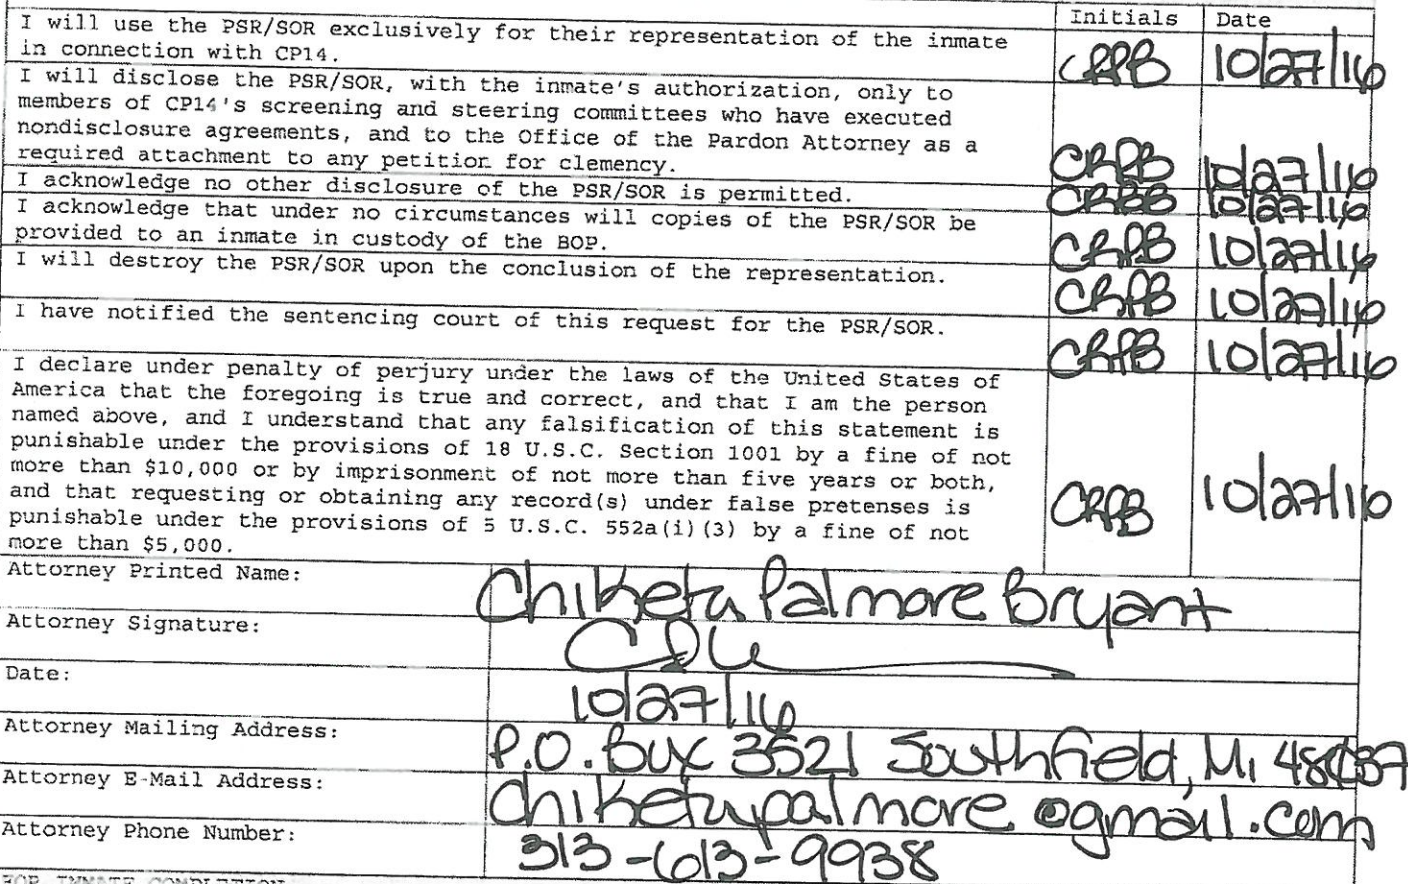 Initials Date
I will use the PSR/SOR exclusively for their representation of the inmate
in connection with CP14.
CRPB 10/27/16
I will disclose the PSR/SOR, with the inmate's authorization, only to
members of CP14's screening and steering committees who have executed
nondisclosure agreements, and to the Office of the Pardon Attorney as a
required attachment to any petition for clemency.
CRPB 10/27/16
I acknowledge no other disclosure of the PSR/SOR is permitted.
CRPB 10/27/16
I acknowledge that under no circumstances will copies of the PSR/SOR be
provided to an inmate in custody of the BOP.
CRPB 10/27/16
I will destroy the PSR/SOR upon the conclusion of the representation.
CRPB 10/27/16
I have notified the sentencing court of this request for the PSR/SOR.
CRPB 10/27/16
I declare under penalty of perjury under the laws of the United States of
America that the foregoing is true and correct, and that I am the person
named above, and I understand that any falsification of this statement is
punishable under the provisions of 18 U.S.C. Section 1001 by a fine of not
more than $10,000 or by imprisonment of not more than five years or both,
and that requesting or obtaining any record(s) under false pretenses is
punishable under the provisions of 5 U.S.C. 552a(i)(3) by a fine of not
more than $5,000.
CRPB 10/27/16
Attorney Printed Name: Chiketa Palmore Bryant
Attorney Signature:
Date: 10/27/16
Attorney Mailing Address: P.O. Box 3521 Southfield, Mi 48037
Attorney E-Mail Address: chiketapalmore@gmail.com
Attorney Phone Number: 313-613-9938